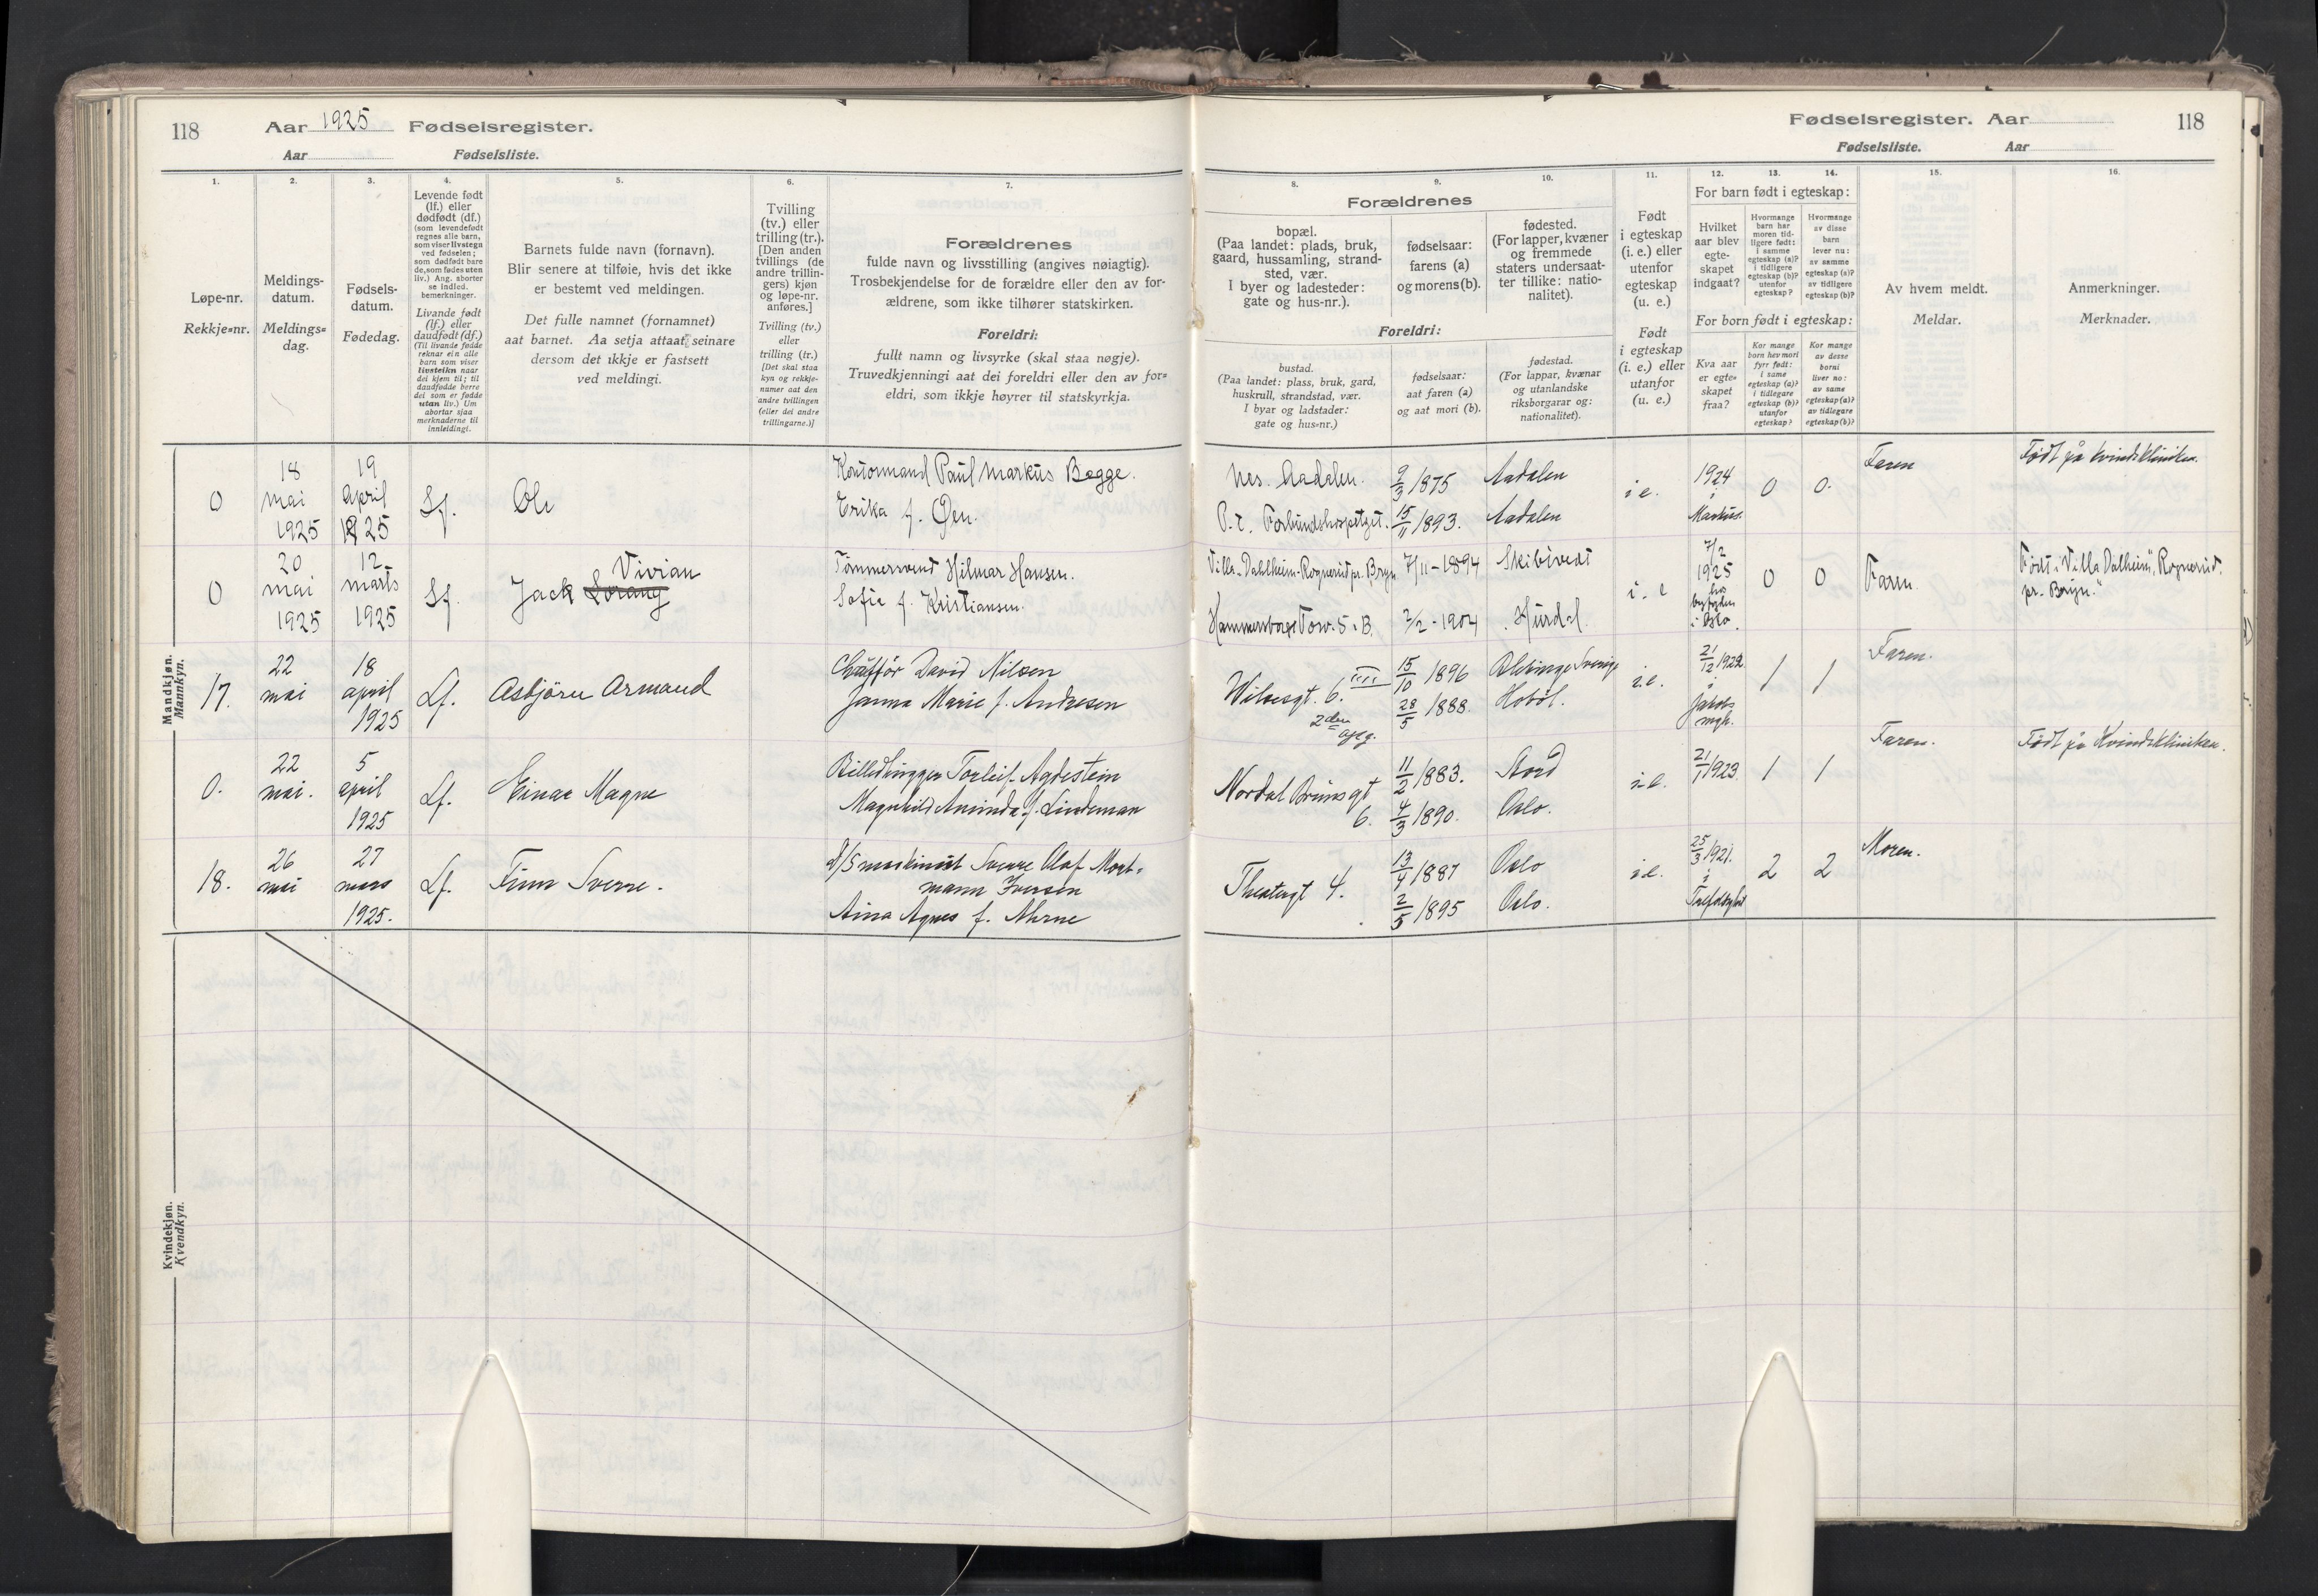 118
Aar 1925 Fødselsregister.
Aar Fødselsliste.
1.
Løpe-nr.
Rekkje=nr.
2.
Meldings-
datum.
Meldings=
dag.
3.
Fødsels-
datum.
Fødedag.
4.
Levende født
(lf.) eller
dødfødt (df.)
(som levendefødt
regnes alle barn,
som viser livstegn
ved fødselen;
som dødfødt bare
de, som fødes uten
liv.) Ang. aborter
se indled.
bemerkninger.
Livande født
(lf.) eller
daudfødt (df.)
(Til livande fødde
reknar ein alle
barn som viser
livsteikn naar
dei kjem til; til
daudfødde berre
dei som er fødde
utan liv.) Um
abortar sjaa
merknaderne til
innleidingi.
5.
Barnets fulde navn (fornavn).
Blir senere at tilføie, hvis det ikke
er bestemt ved meldingen.
Det fulle namnet (fornamnet)
aat barnet. Aa setja attaat seinare
dersom det ikkje er fastsett
ved meldingi.
6.
Tvilling
(tv.) eller
trilling (tr.).
[Den anden
tvillings (de
andre trillin-
gers) kjøn
og løpe-nr.
anføres.]
Tvilling (tv.)
eller
trilling (tr.)
[Det skal staa
kyn og rekkje-
numer aat den
andre tvillingen
(eller dei andre
trillingarne.)]
7.
Forældrenes
fulde navn og livsstilling (angives nøiagtig).
Trosbekjendelse for de forældre eller den av for-
ældrene, som ikke tilhører statskirken.
Foreldri:
fullt namn og livsyrke (skal staa nøgje).
Truvedkjenningi aat dei foreldri eller den av for=
eldri, som ikkje høyrer til statskyrkja.
Mandkjøn.
Mannkyn.
0
18
mai
1925
19
april
1925
Lf.
Ole
Kontormand Paul Markus Begge.
Erika f. Øen.
0
20
mai
1925
12
marts
1925
Lf.
Vivian
Jack
Tømmersvend Hilmar Hansen.
Sofie f. Kristiansen.
17.
22
mai
18
april
1925
Lf.
Asbjørn Armand
Chaufför David Nilsen
Janna Marie f. Andresen
0.
22
mai.
5
april
1925
Lf.
Einar Magne
Billedhugger Torleif Agdestein
Magnhild Aminda f. Lindeman
18.
26
mai
27
mars
1925.
Lf.
Finn Sverre.
D/S maskinist Sverre Olaf Mort-
mann Iversen
Aina Agnes f. Ahrne
Kvindekjøn.
Kvendkyn.
Fødselsregister. Aar 118
Fødselsliste. Aar
8.
Forældrenes
bopæl.
(Paa landet: plads, bruk,
gaard, hussamling, strand-
sted, vær.
I byer og ladesteder:
gate og hus-nr.).
Foreldri:
bustad.
(Paa landet: plass, bruk, gard,
huskrull, strandstad, vær.
I byar og ladstader:
gate og hus=nr.)
9.
fødselsaar:
farens (a)
og morens (b).
fødselsaar:
aat faren (a)
og aat mori (b).
10.
fødested.
(For lapper, kvæner
og fremmede
staters undersaat-
ter tillike: natio-
nalitet).
fødestad.
(For lappar, kvænar
og utanlandske
riksborgarar og:
nationalitet).
11.
Født
i egteskap
(i. e.) eller
utenfor
egteskap
(u. e.)
Født
i egteskap
(i. e.) eller
utanfor
(u. e.)
12.
13.
14.
For barn født i egteskap:
Hvilket
aar blev
egte-
skapet
indgaat?
Hvormange
barn har
moren tid-
ligere født:
i samme
egteskap (a)?
i tidligere
egteskap (b)?
utenfor
egteskap?
Hvormange
av disse
barn
lever nu:
av samme
egteskap (a)?
av tidligere
egteskap (b)?
For born født i egteskap:
Kva aar
er egte=
skapet
fraa?
Kor mange
born hev mori
fyrr født:
i same
egteskap (a)?
i tidlegare
egteskap (b)?
utanfor
egteskap?
Kor mange
av desse
borni
liver no:
av same
egteskap (a)?
av tidlegare
egteskap (b)?
15.
Av hvem meldt.
Meldar.
16.
Anmerkninger.
Merknader.
Nes. Aadalen.
9/3 1875
Aadalen
i e.
1924
i
Markus.
0
0.
Faren
Født på kvindekliniken.
P.t.
15/11 1893.
Aadalen
Villa-Dahlheim-Rognerud pr. Bryn
7/11 - 1894
Skibtvedt
i. e
7/2
1925
hos
byfogden
i Oslo.
0
0
Faren.
Født i "Villa Dalheim", Rognerud.
pr. Bryn."
Hammersborg Torv. 5. B.
2/2 - 1904
Hurdal
Wilsesgt. 6. IIII
2den opg.
15/10 1896
Blekinge Sverige
i.e.
21/12 1922
i
Jakobs
mgh.
1
1
Faren.
28/5 1888.
Hobøl.
Nordal Brunsgt
6.
11/2 1883.
Stord
i.e.
21/1 1923.
1
1
Faren.
Født på Kvindekliniken.
4/3 1890.
Oslo.
Theatergt 4.
13/4 1887
Oslo
i.e.
25/3 1921.
i
2
2
Moren.
2/5 1895
Oslo.